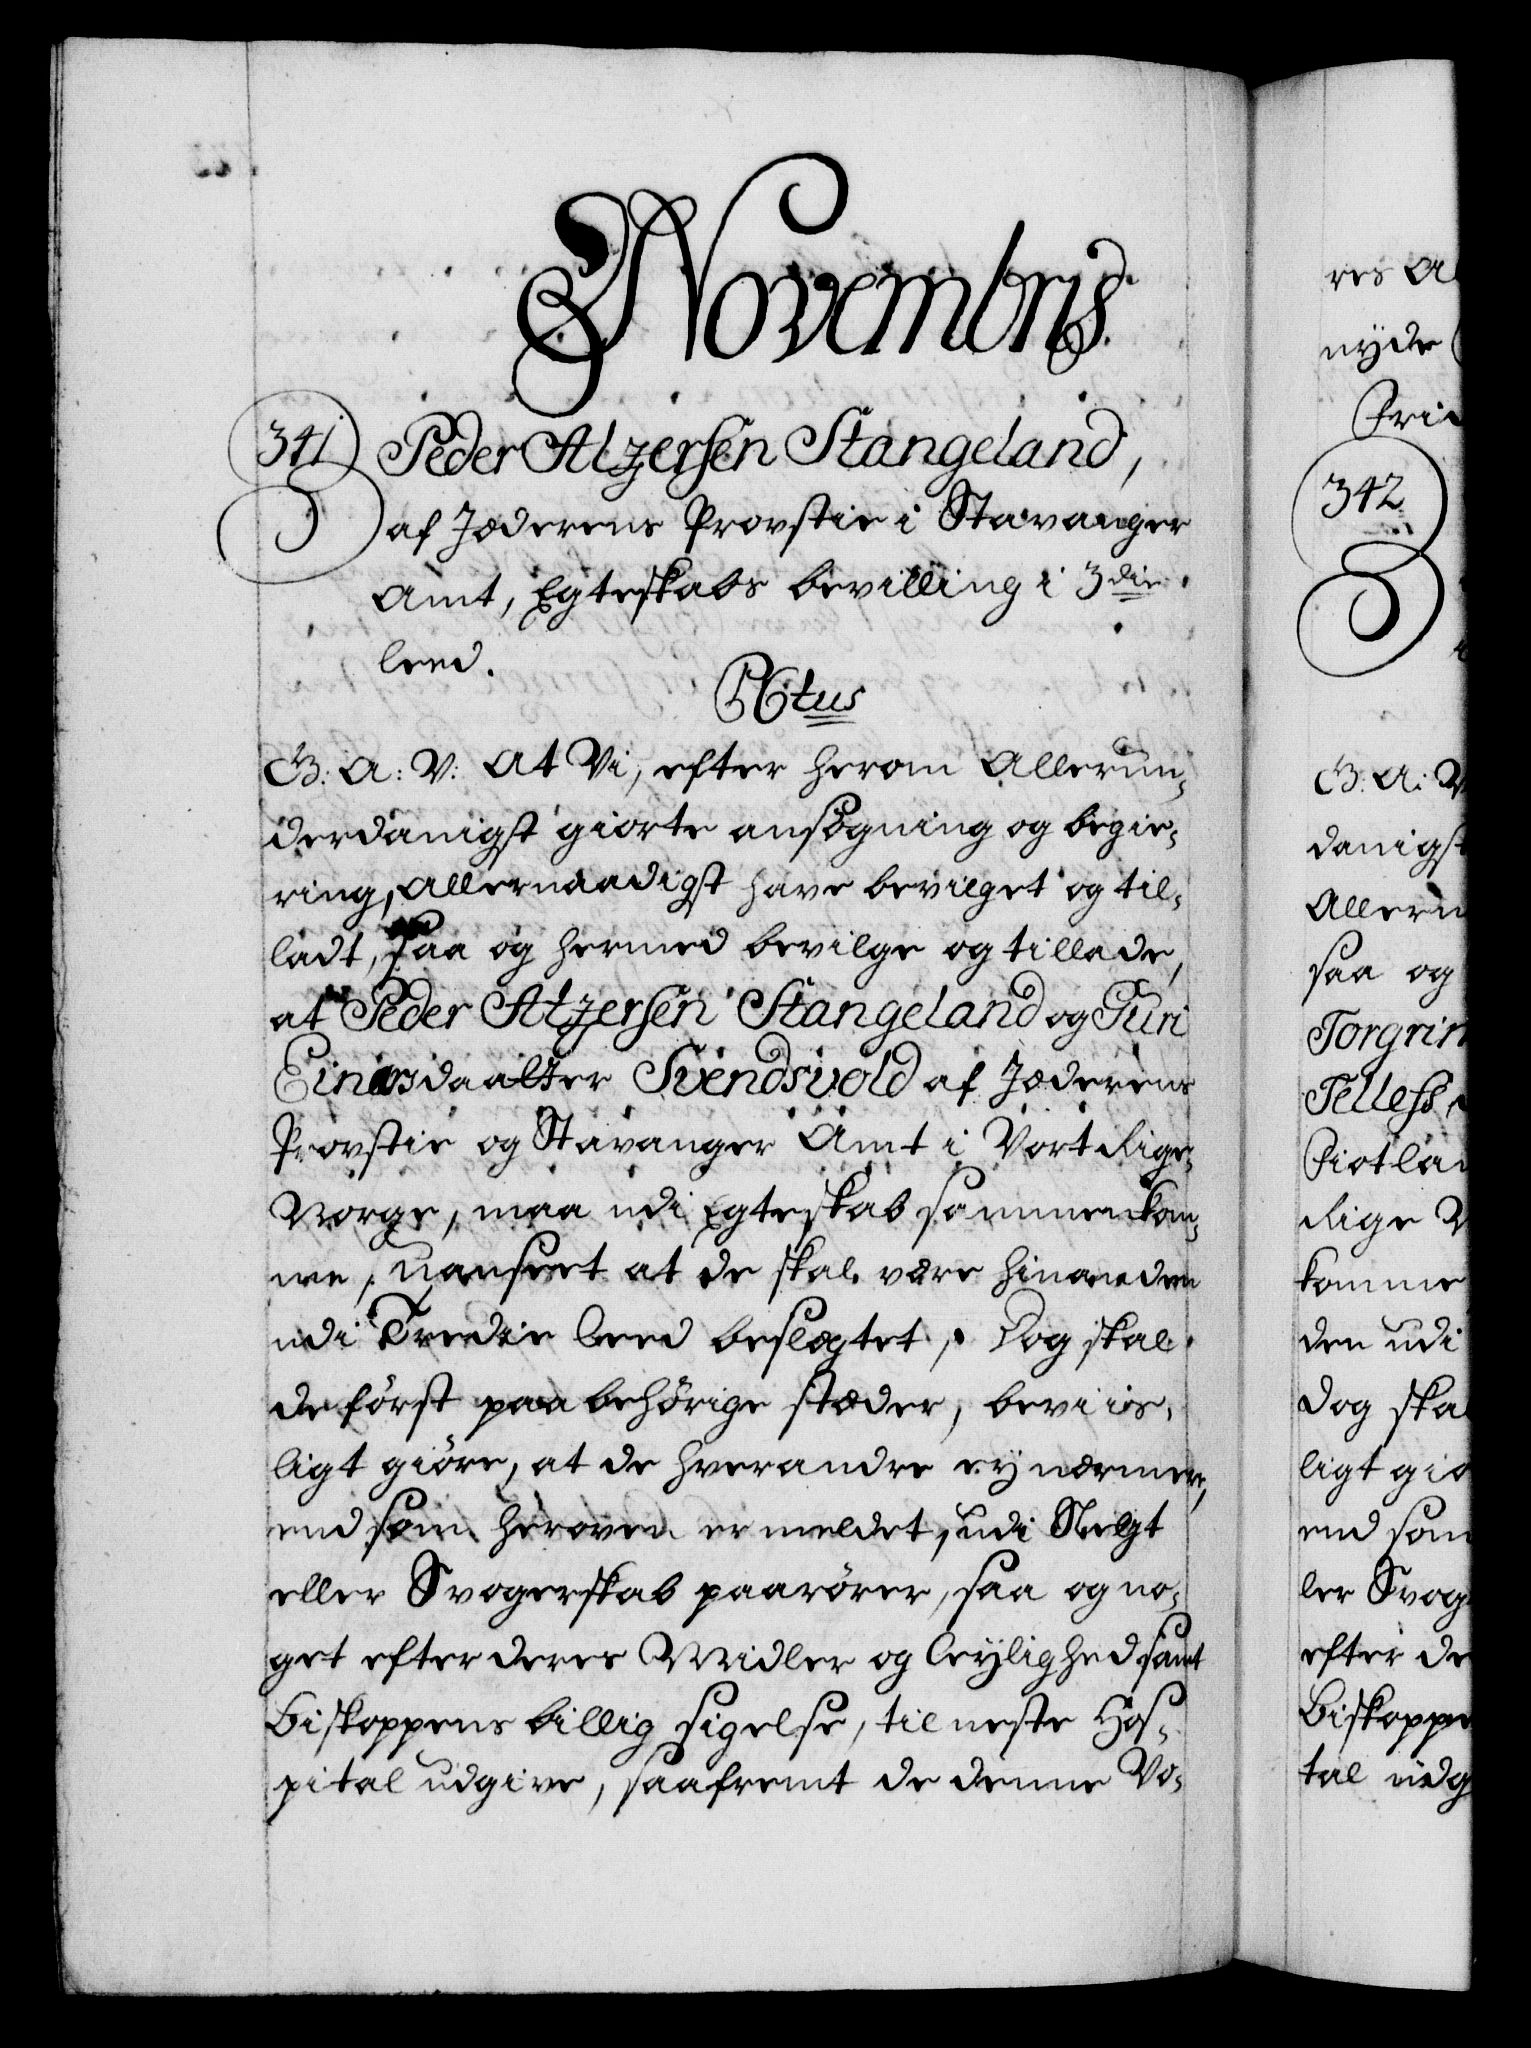 Novembris.
341
Peder Atzersen Stangeland,
af Jæderens Provstie i Stavanger
Amt, Egteskabs bevilling i 3die
leed.
G: A: V: At Vi, efter herom Allerun-
derdanigst giorte ansøgning og begie-
ring, Allernaadigst have bevilget og til-
ladt, saa og hermed bevilge og tillade,
at Peder Atzersen Stangeland og Guri
Einarsdaatter Svendsvold af Jæderens
Provstie og Stavanger Amt i Vort Rige
Norge, maa udi Egteskab sammenkom-
me, uanseet at de skal være hinanden
udi Tredie leed beslægtet, Dog skal
de först paa behörige stæder, beviis-
ligt giöre, at de hverandre ey nærmere,
end som heroven er meldet, udi Slegt
eller Svogerskab paarörer, saa og no-
get efter deres Midler og leylighed samt
Biskoppens billig sigelse, til neste Hos-
pital udgive, saafremt de denne Vo-
res
nyde
342
G: A: V
danigst
Allern
saa og
Torgrim
Telless
Rige
komme
den udi
Dog skal
ligt giö
end som
ler Svog
efter de
Biskoppe
tal udg